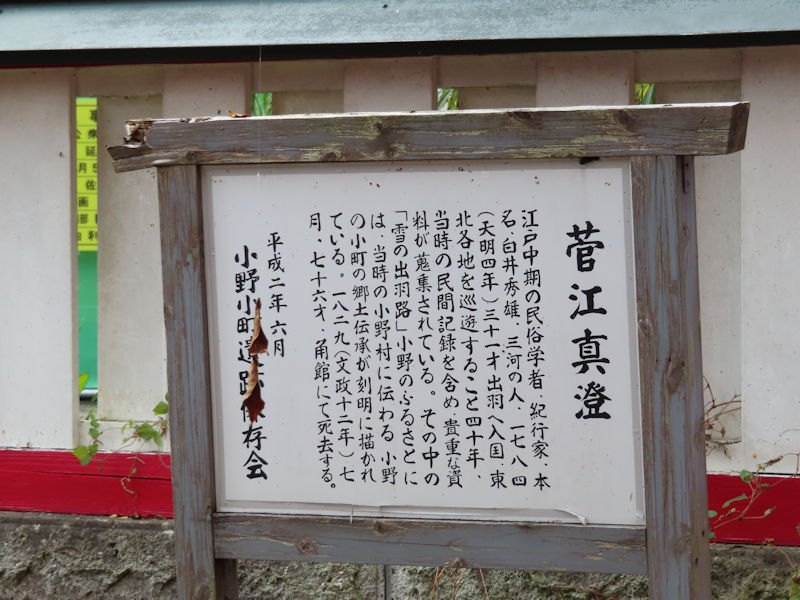 菅江真澄
江戸中期の民俗学者、紀行家、本
名・白井秀雄、三河の人、一七八四
(天明四年)三十一才出羽へ入国 東
北各地を巡遊すること四十年、
当時の民間記録を含め、貴重な資
料が蒐集されている。その中の
「雪の出羽路」小野のふるさとに
は、当時の小野村に伝わる 小野
の小町の郷土伝承が刻明に描かれ
ている。一八二九(文政十二年)七
月、七十六才、角館にて死去する。
平成二年六月
小野小町遺跡保存会